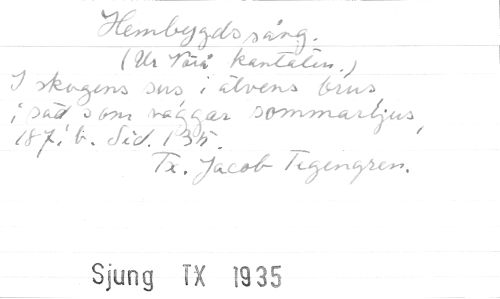 Hembygdssång.
(Ur Vörå kantaten.)
I skogens sus i älvens brus
i säd som vaggar sommarljus,
187: b. Sid. 135.
Tx. Jacob Tegengren.
Sjung TX 1935